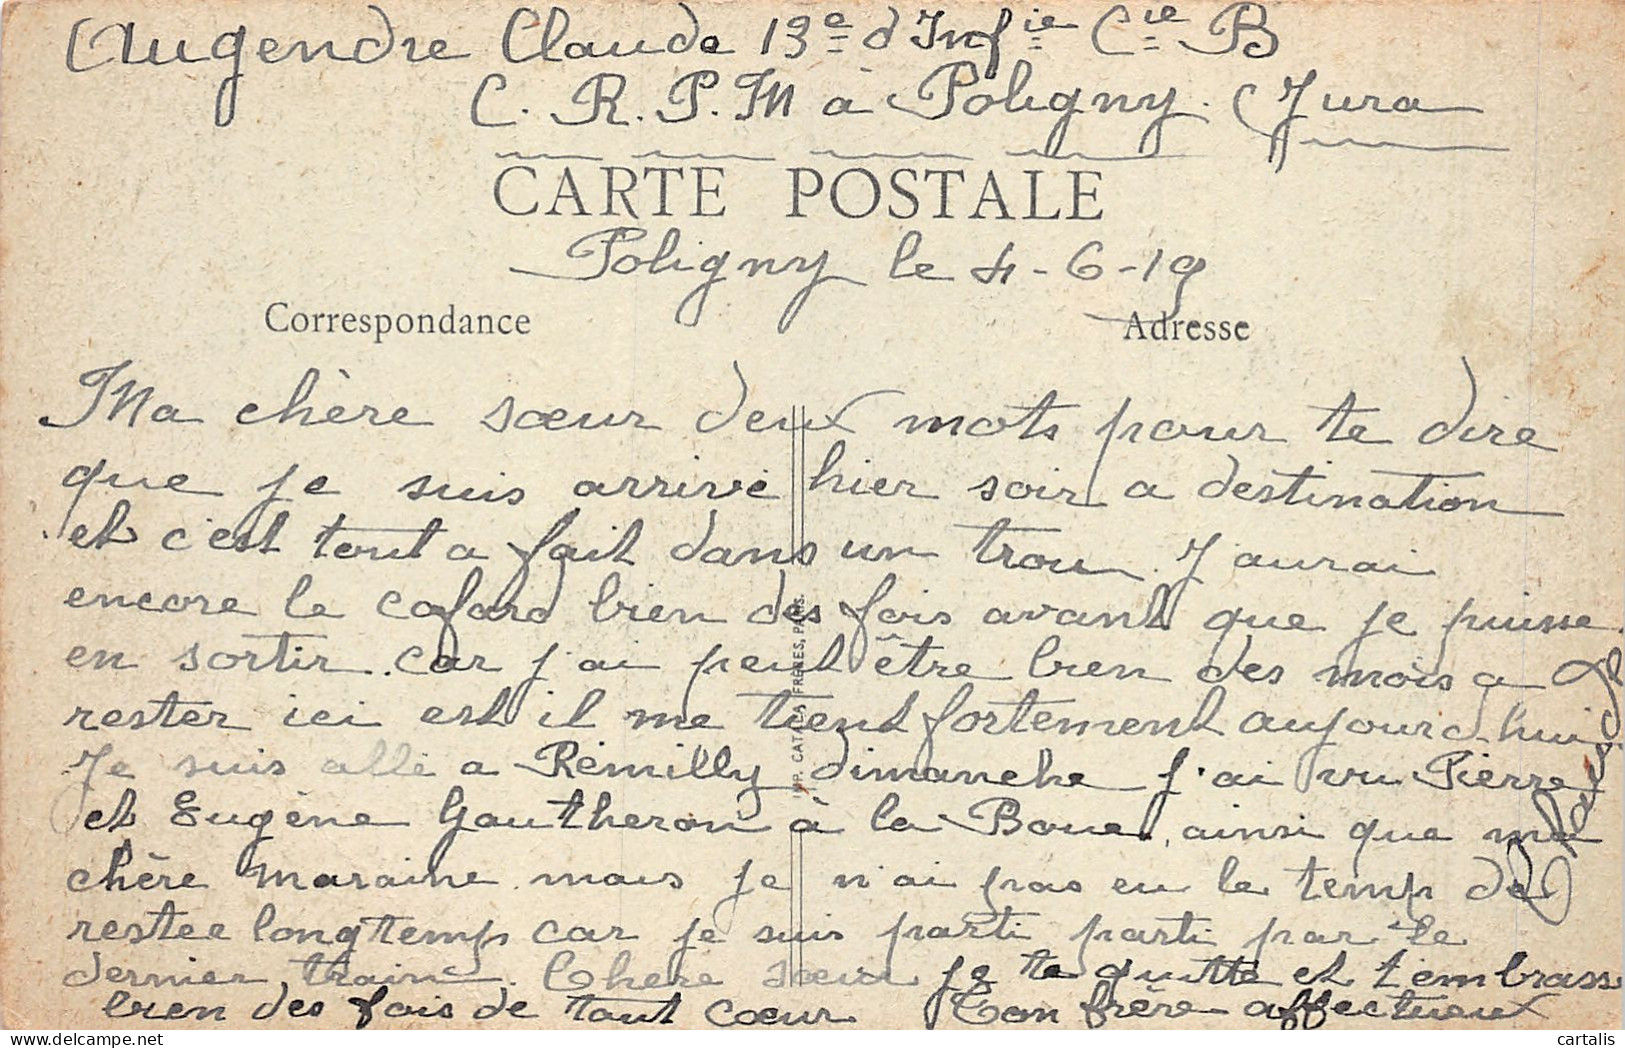 Augendre Claude 13e d'Infie Cie B
C. R. P. M à Poligny. (Jura
CARTE POSTALE
Poligny le 4-6-19
Correspondance
Adresse
Ma chère sœur deux mots pour te dire
que je suis arrivé hier soir a destination
et c'est tout a fait dans un trou. J'aurai
encore le cafard bien des fois avant que je puisse
en sortir. car j'ai peut être bien des mois a
rester ici est il me tient fortement aujourd'hui
Je suis allé a Rémilly dimanche j'ai vu Pierre
et Eugène Gautheron à la Boue, ainsi que ma
chère maraine mais je n'ai pas eu le temp de
restee longtemp car je suis parti parti par le
dernier train. Chere sœur je te quitte et t'embrass
bien des fois de tout cœur Ton frère affectueux
Claude
IMP. CATALA FRÈRES, PARIS.
cartalis
delcampe.net